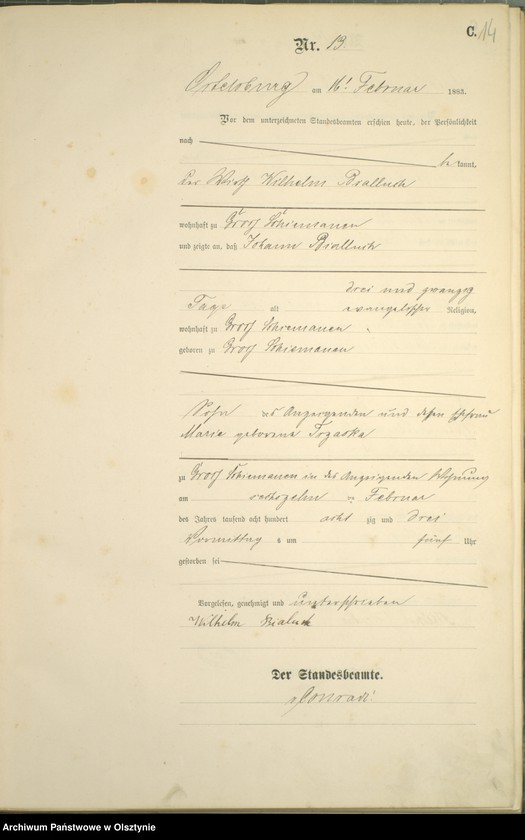 C. 14
Nr. 13.
Ortelsburg am 16t Februar 1883.
Vor dem unterzeichneten Standesbeamten erschien heute, der Persönlichkeit
nach
be kannt,
der Wirth Wilhelm Bialluch
wohnhaft zu Groß Schiemanen
und zeigte an, daß Johann Bialluch
drei und zwanzig
Tage alt evangelischer Religion,
wohnhaft zu Groß Schiemanen
geboren zu Groß Schiemanen
Sohn des Anzeigenden und dessen Ehefrau
Marie geborene Trzaska
zu Groß Schiemanen in des Anzeigenden Wohnung
am sechszehn ten Februar
des Jahres tausend acht hundert acht zig und drei
Vormittag s um fünf Uhr
gestorben sei
Vorgelesen, genehmigt und unterschrieben
Wilhelm Bialuch
Der Standesbeamte.
Conradi
Archiwum Państwowe w Olsztynie